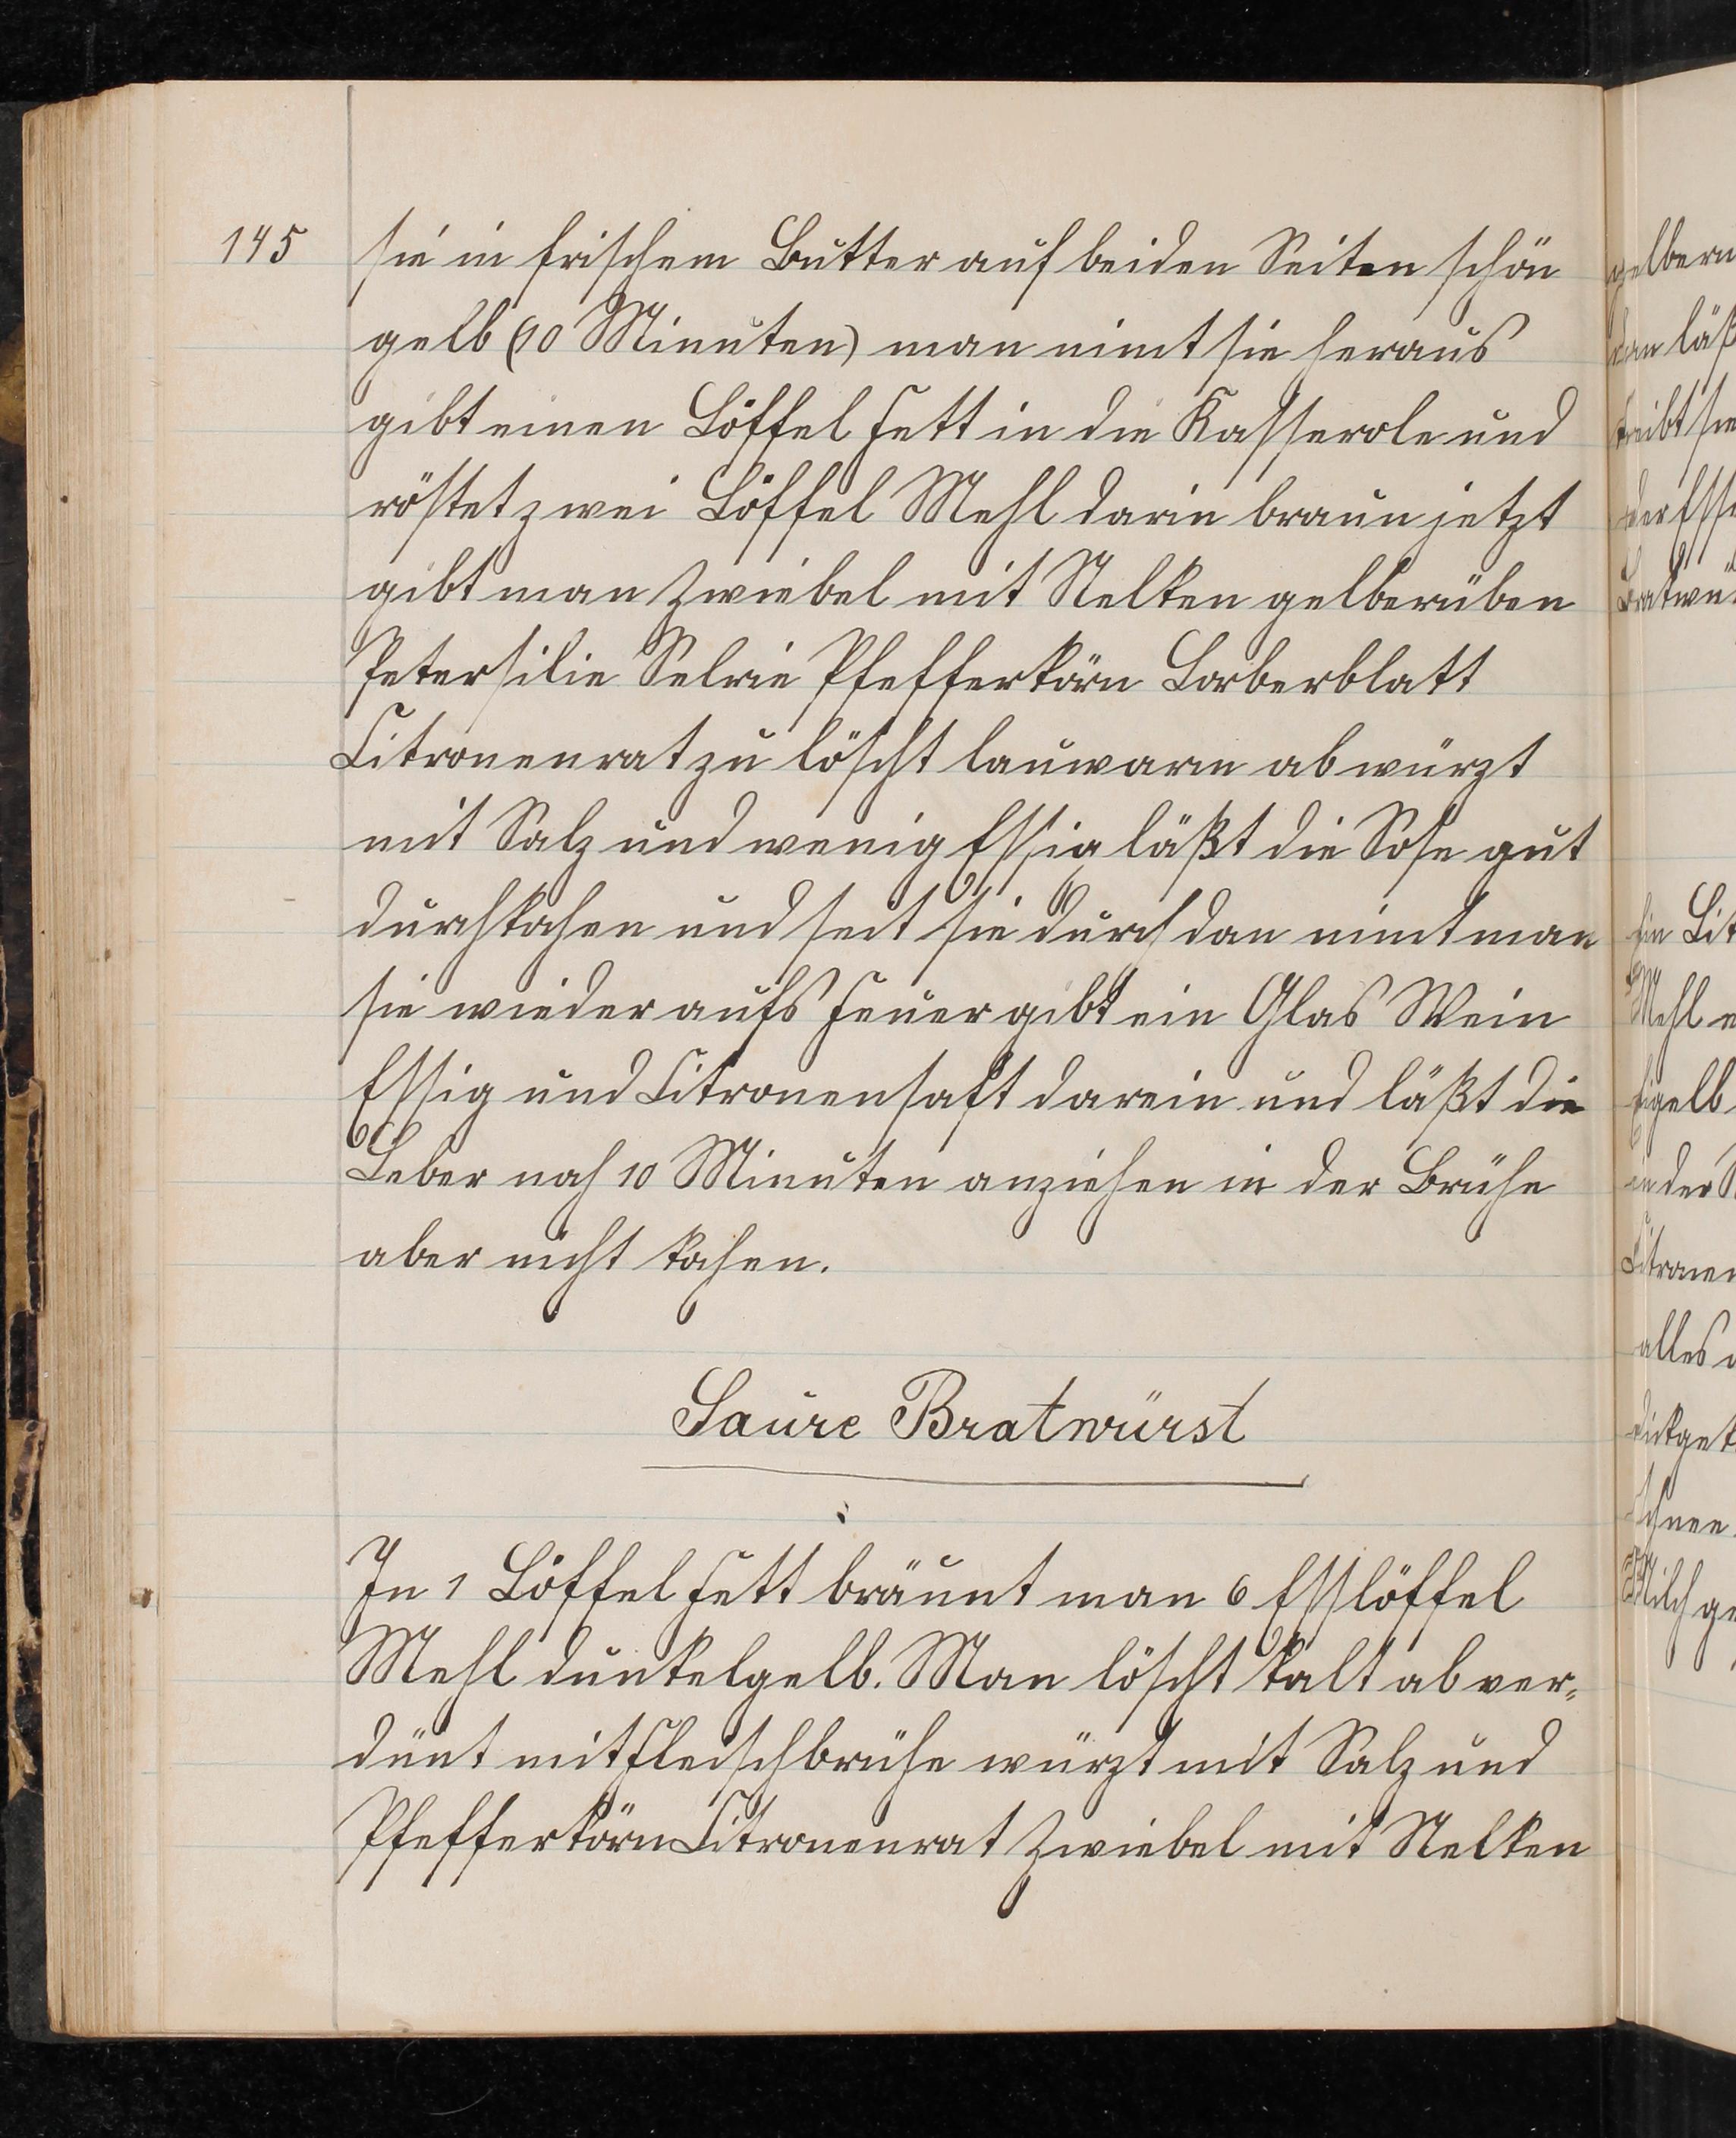 145
sie in frischem Butter auf beiden Seiten schön
gelb (10 Minuten) man nimt sie heraus
gibt einen Löffel Fett in die Kasserole und
röstet zwei Löffel Mehl darin braun jetzt
gibt man Zwiebel mit Nelken gelberüben
Petersilie Selrie Pfefferkörn Lorberblatt
Citronenrat zu löscht lauwarm ab würzt
mit Salz und wenig Essig läßt die Sose gut
durchkochen und seit sie durch dan nimt man
sie wieder aufs Feuer gibt ein Glas Wein
Essig und Citronensaft darein und läßt die
Leber noch 10 Minuten anziehen in der Brühe
aber nicht kochen.
Saure Bratwürst
In 1 Löffel Fett bräunt man 6 Esslöffel
Mehl dunkelgelb. Man löscht kalt ab ver-
dünt mit Fleischbrühe würzt mit Salz und
Pfefferkörn Citronenrat Zwiebel mit Nelken